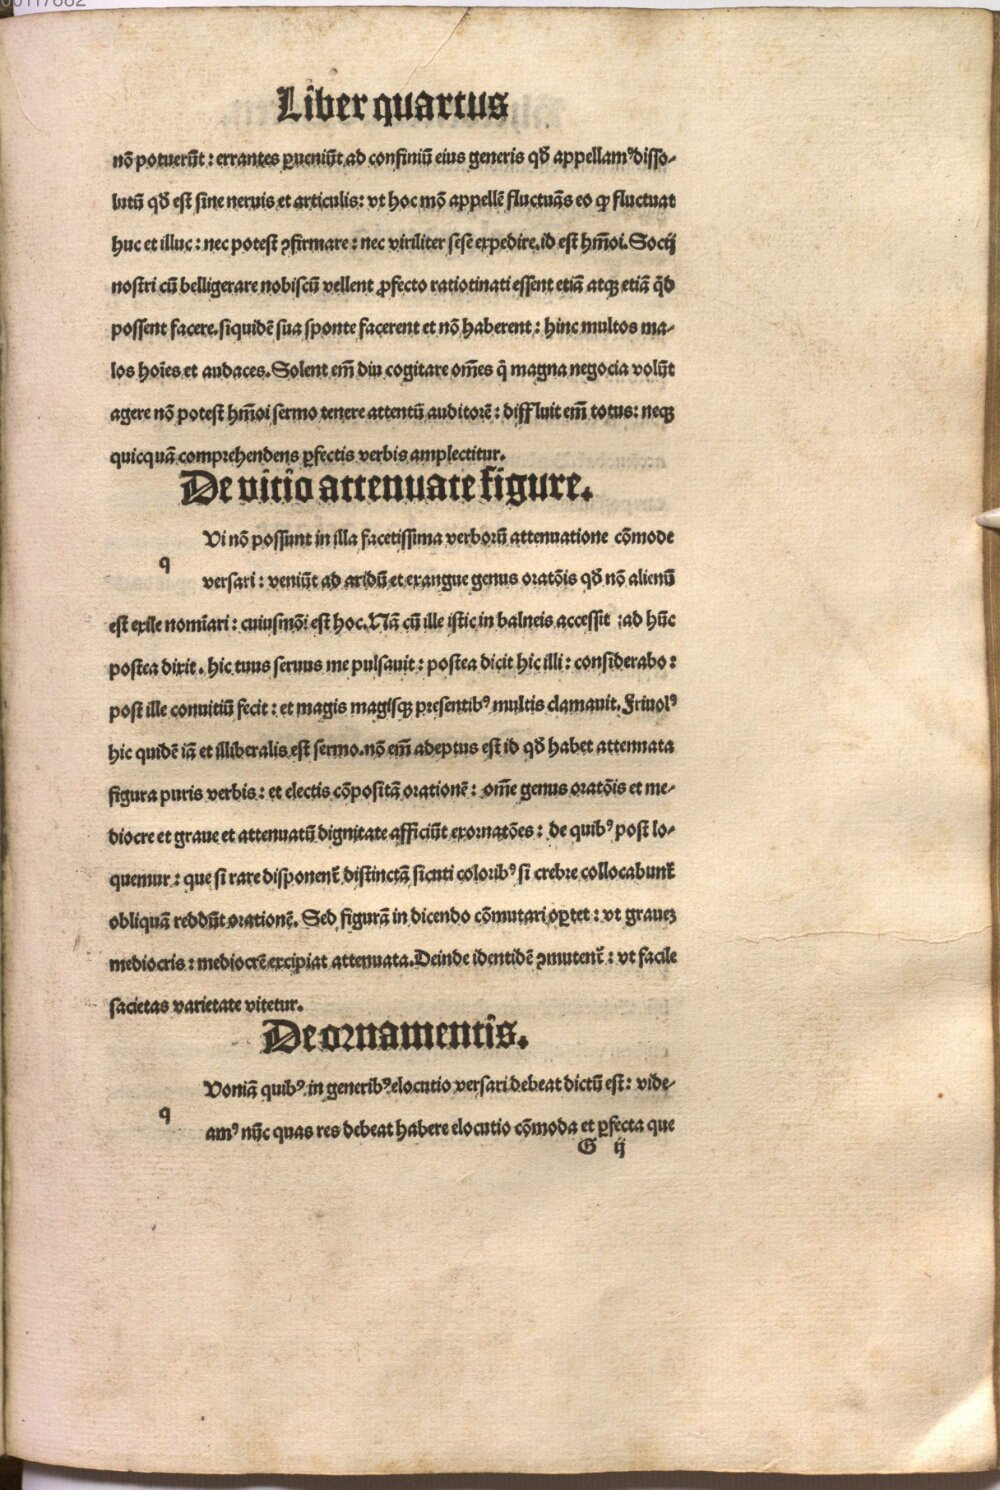 Liber quartus
nõ potuerũt : errantes ꝑueniũt ad confiniũ eius generis qđ appellamꝰ disso⸗
lutũ qđ est sine neruis et articulis : vt hoc mõ appellẽ fluctuãs eo ꝙ fluctuat
huc et illuc : nec potest ꝯfirmare : nec viriliter sese expedire. id est hm̃oi. Socij
nostri cũ belligerare nobiscũ vellent ꝓfecto ratiotinati essent etiã atqꝫ etiã qđ
possent facere. siquidẽ sua sponte facerent et nõ haberent : hinc multos ma⸗
los hoĩes et audaces. Solent em̃ diu cogitare om̃es q̃ magna negocia volũt
agere nõ potest hm̃oi sermo tenere attentũ auditorẽ : diffluit em̃ totus : neqꝫ
quicquã comprehendens ꝑfectis verbis amplectitur.
De vitio attenuate figure.
Vi nõ possunt in illa facetissima verborũ attenuatione cõmode
q
versari : veniũt ad aridũ et exangue genus oratõis qđ nõ alienũ
est exile nomĩari : cuiusmõi est hoc. Nã cũ ille istic in balneis accessit : ad hũc
postea dixit . hic tuus seruus me pulsauit : postea dicit hic illi : considerabo :
post ille conuitiũ fecit : et magis magisqꝫ presentibꝰ multis clamauit. Friuolꝰ
hic quidẽ iã et illiberalis est sermo. nõ em̃ adeptus est id qđ habet attennata
figura puris verbis : et electis cõpositã orationẽ : om̃e genus oratõis et me⸗
diocre et graue et attenuatũ dignitate afficiũt exornatões : de quibꝰ post lo⸗
quemur : que si rare disponent̃ distinctã sicuti coloribꝰ si crebre collocabunt̃
obliquã reddũt orationẽ. Sed figurã in dicendo cõmutari oꝑtet : vt grauez
mediocris : mediocrẽ excipiat attenuata. Deinde identidẽ ꝯmutent̃ : vt facile
sacietas varietate vitetur.
De ornamentis.
Voniã quibꝰ in generibꝰ elocutio versari debeat dictũ est : vide⸗
q
amꝰ nũc quas res debeat habere elocutio cõmoda et ꝑfecta que
G ij